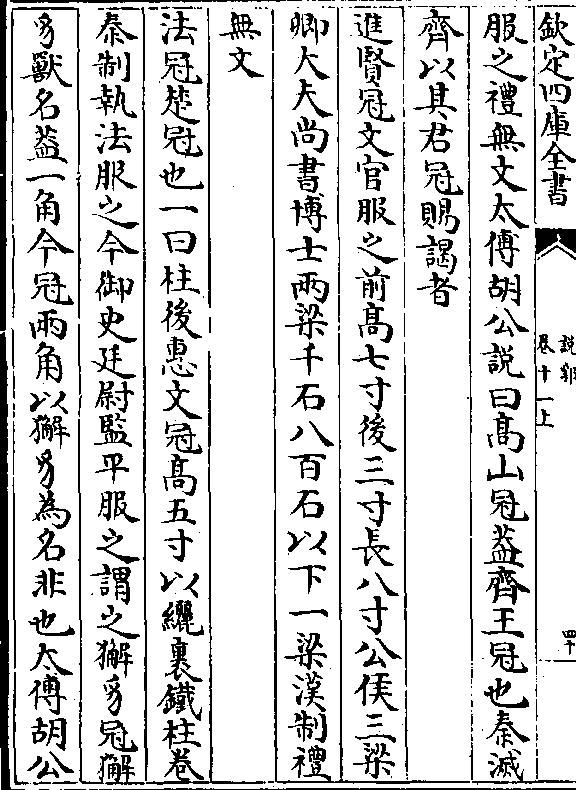 欽定四庫全書
說郛
卷十一上
四十
服之禮無文太傅胡公説曰髙山冠葢齊王冠也秦滅
齊以其君冠賜謁者
進賢冠文官服之前髙七寸後三寸長八寸公侯三梁
卿大夫尚書博士兩梁千石八百石以下一梁漢制禮
無文
法冠楚冠也一曰柱後惠文冠髙五寸以纚裏鐵柱卷
秦制執法服之今御史廷尉監平服之謂之獬豸冠獬
豸獸名葢一角今冠兩角以獬豸為名非也太傅胡公